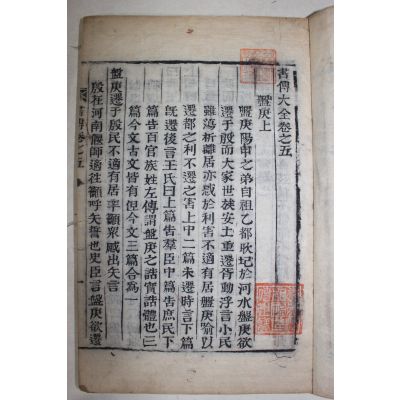 書傳大全卷之五
盤庚上
盤庚陽甲之弟自祖乙都耿圮於河水盤庚欲
遷于殷而大家世族安土重遷胥動浮言小民
雖蕩析離居亦惑於利害不適有居盤庚喻以
遷都之利不遷之害上中二篇未遷時言下篇
既遷後言王氏曰上篇告羣臣中篇告庶民下
篇告百官族姓左傳謂盤庚之誥實誥體也三
篇今文古文皆有但今文三篇合為一
盤庚遷于殷民不適有居率籲眾慼出矢言
殷在河南偃師適往籲呼矢誓也史臣言盤庚欲遷
書傳卷之五